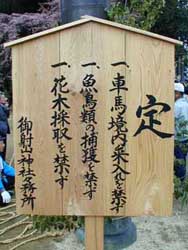 定
一、車馬境内乗入れを禁ず
一、魚鳥類の捕獲を禁ず
一、花木採取を禁ず
御射山神社々務所